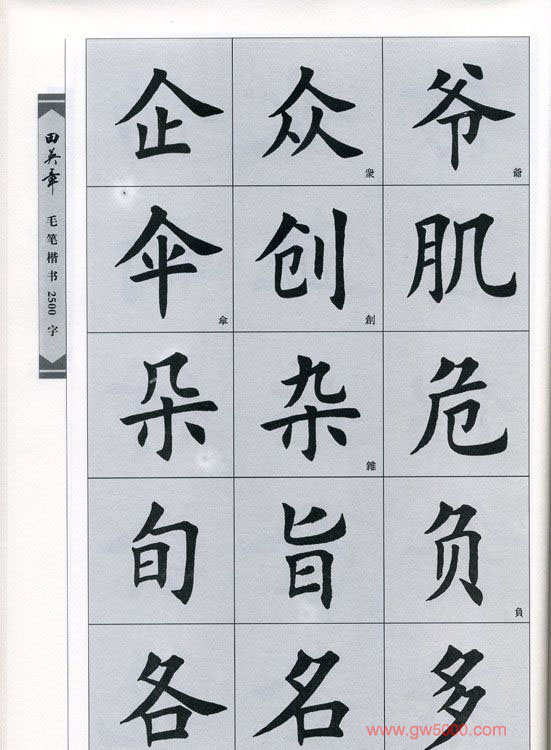 田英章 毛笔楷书2500字
企 众 衆 爷 爺
伞 傘 创 創 肌
朵 杂 雜 危
旬 旨 负 負
各 名 多
www.gw5000.com